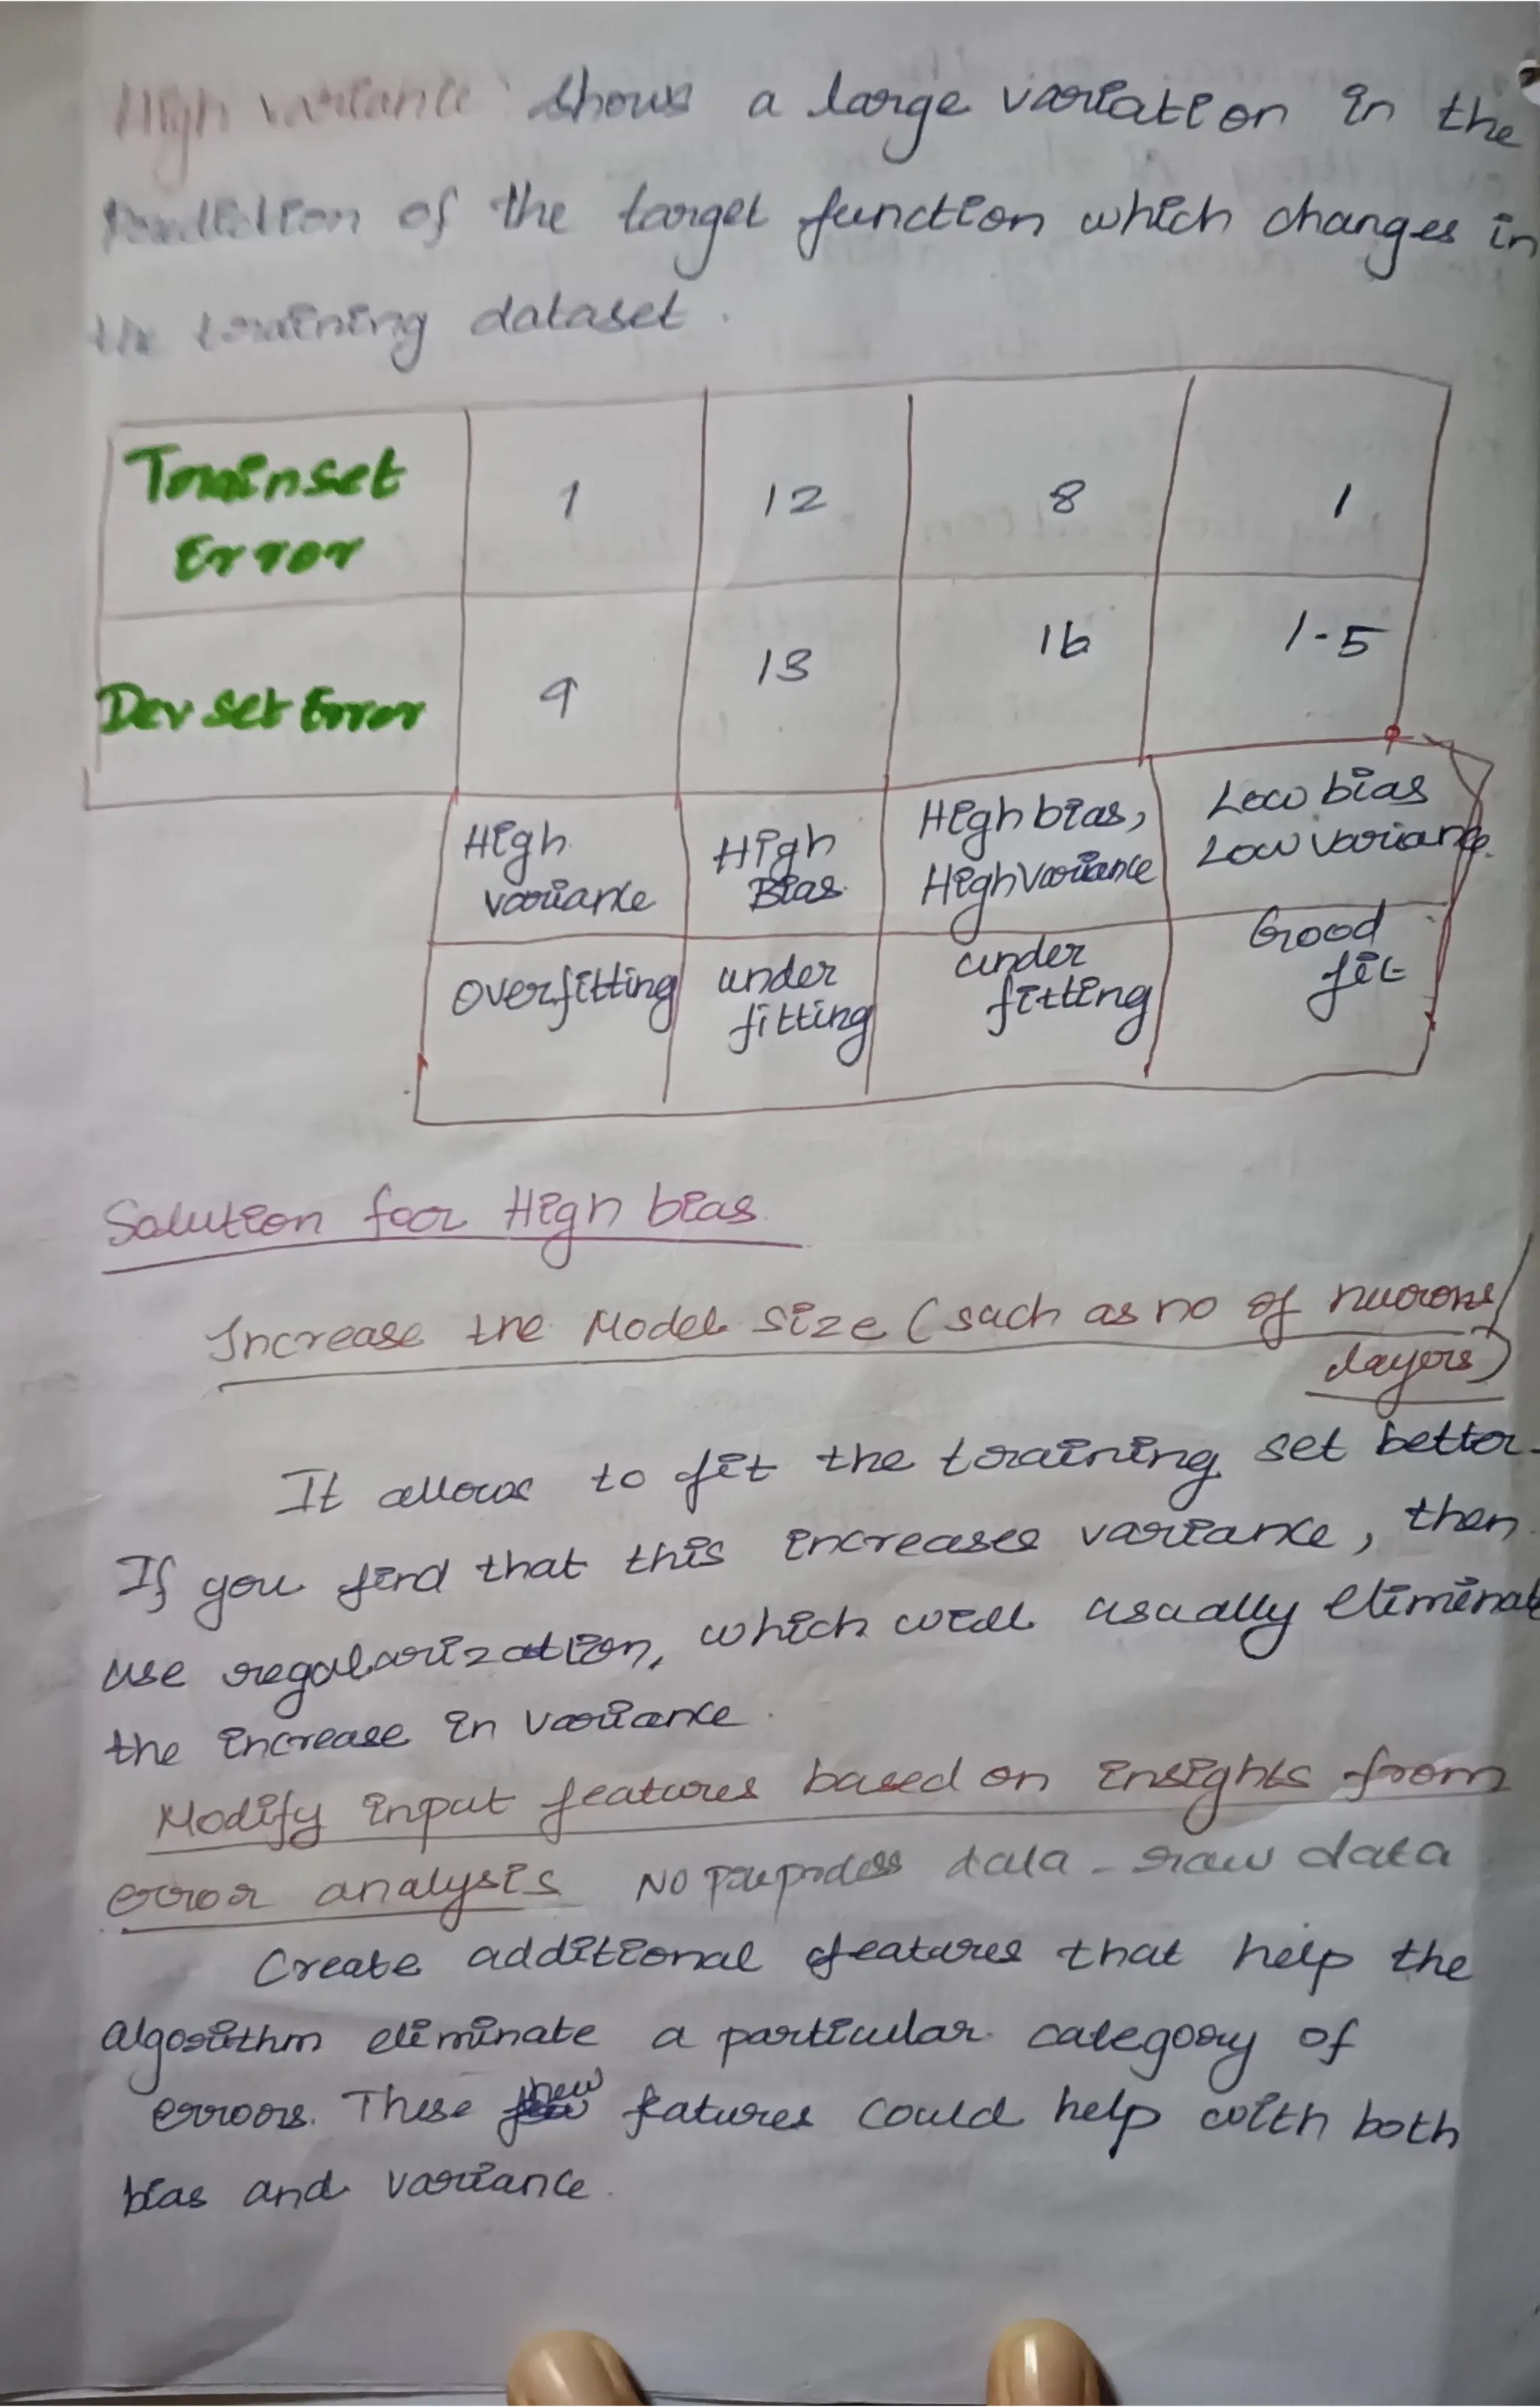 High variance shows a large variation in the
prediction of the target function which changes in
the training dataset.
Trainset Error 1 12 8 1
Dev set Error 9 13 16 1.5
High variance High Bias High bias, High Variance Low bias Low variance
Overfitting under fitting under fitting Good fit
Solution for High bias.
Increase the Model size (such as no of nuorons/
layers)
It allows to fit the training set better.
If you find that this increases variance, then
use regularization, which will usually eliminate
the increase in variance.
Modify input features based on insights from
error analysis No prepprocess data - raw data
Create additional features that help the
algorithm eliminate a particular category of
errors. These new fatures could help with both
bias and variance.